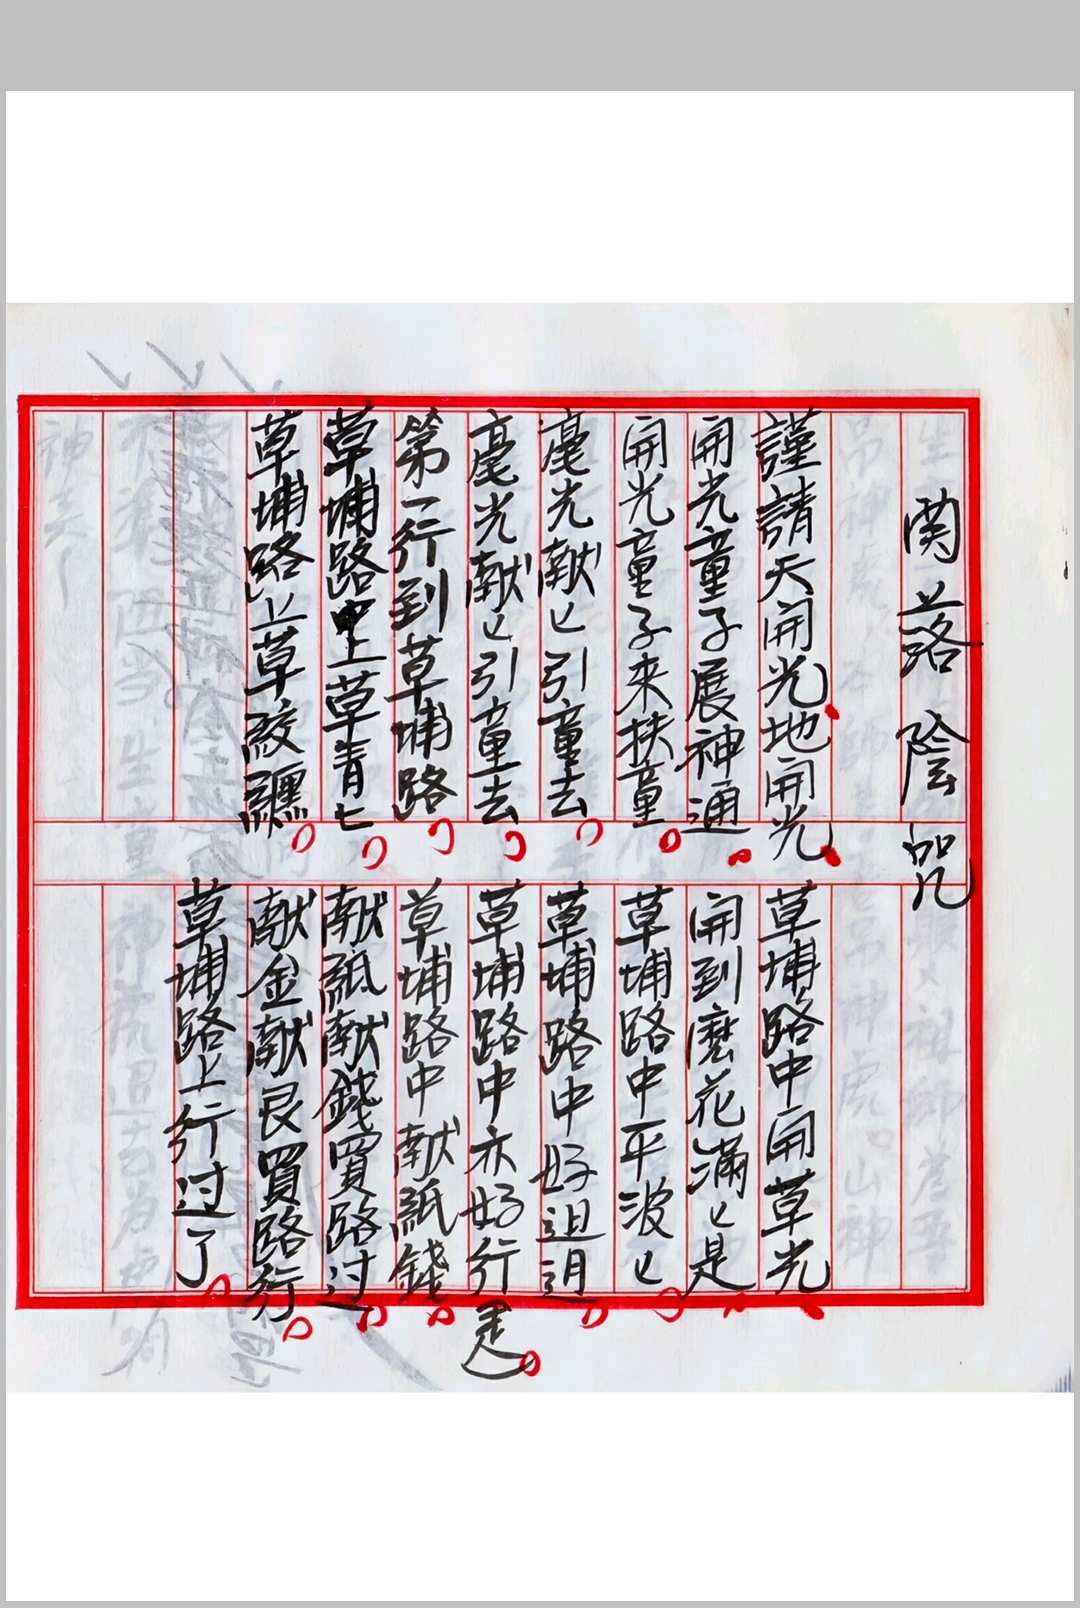 関落陰咒
謹請天開光地開光
開光童子展神通
開光童子来扶童
毫光献匕引童去
毫光献匕引童去
第一行到草埔路
草埔路中上草青匕
草埔路上草絞纏
草埔路中開草光
開到麽花滿匕是
草埔路中平波匕
草埔路中好迌迌
草埔路中亦好行走
草埔路中献紙錢
献紙献錢買路过
献金献艮買路行
草埔路上行过了